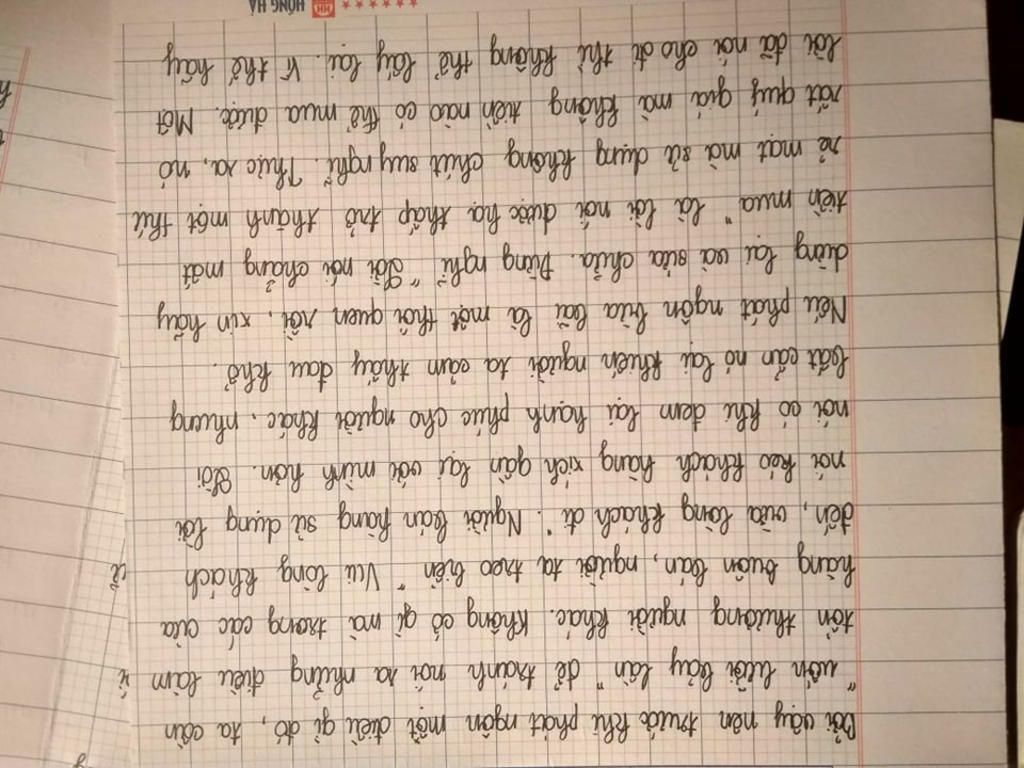 Bởi vậy nên trước khi phát ngôn một điều gì đó, ta cần
"uốn lưỡi bảy lần" để tránh nói ra những điều làm
tổn thương người khác. Không cớ gì mà trong các cửa
hàng buôn bán, người ta treo biển "Vui lòng khách
đến, vừa lòng khách đi". Người bán hàng sử dụng lời
nói kéo khách hàng xích gần lại với mình hơn. Lời
nói có khi đem lại hạnh phúc cho người khác, nhưng
bất cẩn nó lại khiến người ta cảm thấy đau khổ.
Nếu phát ngôn bừa bãi là một thói quen rồi, xin hãy
dừng lại và sửa chữa. Đừng nghĩ "Lời nói chẳng mất
tiền mua" là lời nói được hạ thấp trở thành một thứ
rẻ mạt mà sử dụng không chút suy nghĩ. Thực ra, nó
rất quý giá mà không tiền nào có thể mua được. Một
lời đã nói cho đi thì không thể lấy lại. Vì thế hãy
HỒNG HÀ